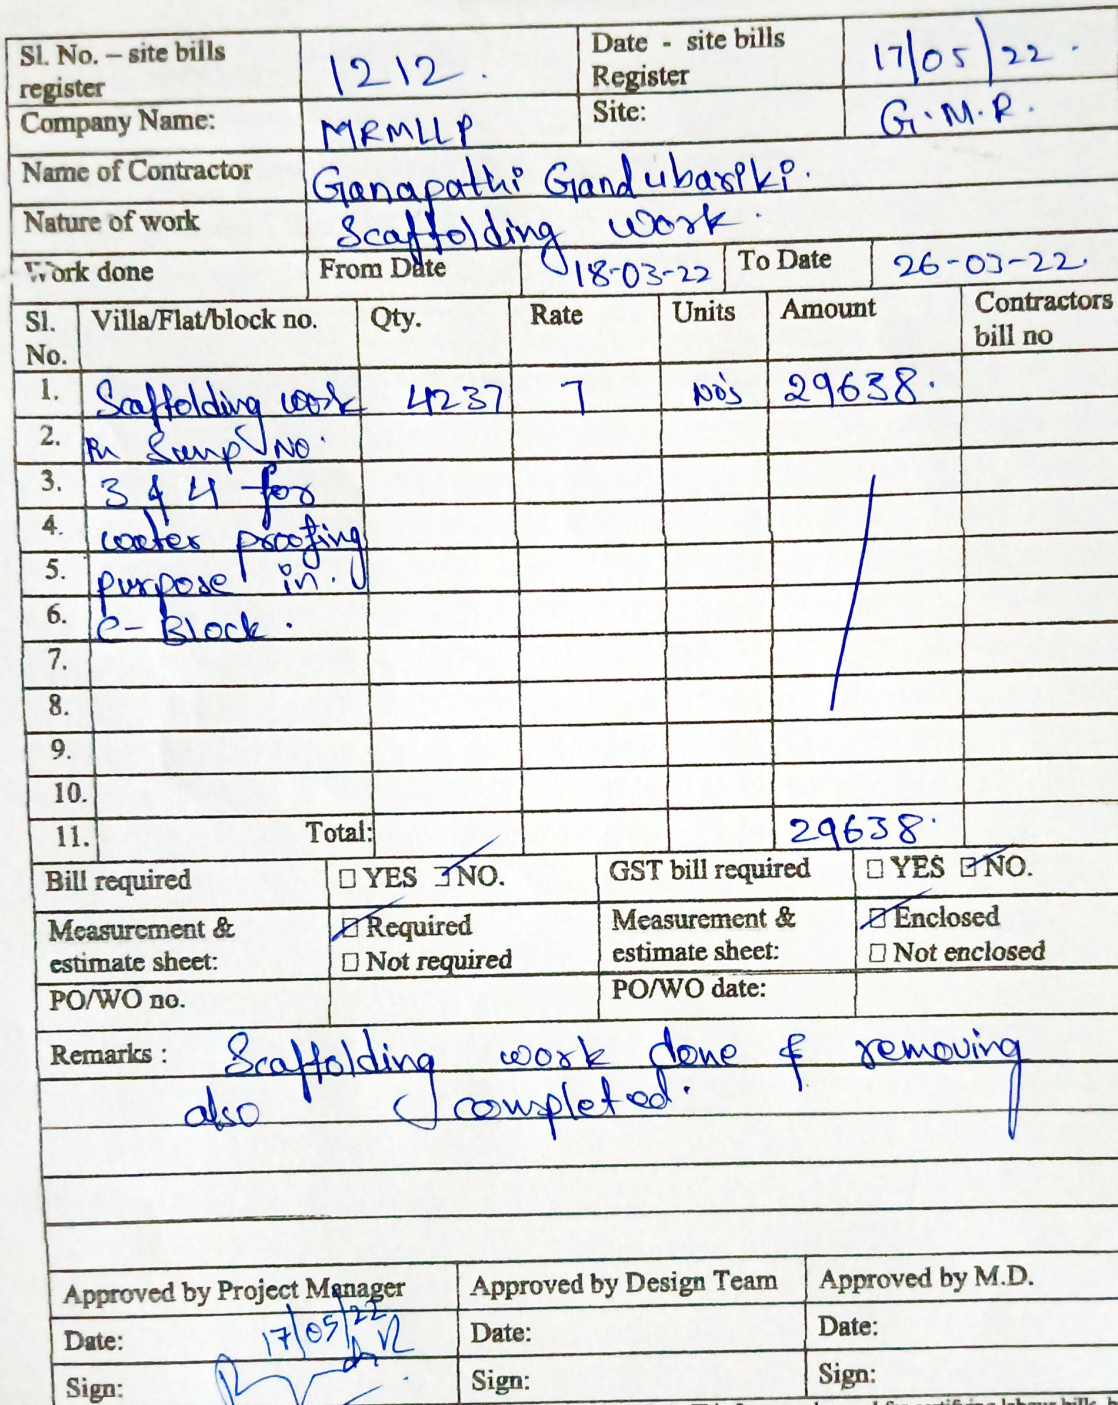 Sl. No. – site bills register 1212. Date - site bills Register 17/05/22.
Company Name: MRMLLP Site: G.M.R.
Name of Contractor Ganapathi Gandubariki.
Nature of work Scaffolding work.
Work done From Date 18-03-22 To Date 26-03-22.
Sl. No. Villa/Flat/block no. Qty. Rate Units Amount Contractors bill no
1. Scaffolding work 4237 7 No's 29638.
2. in Sump No.
3. 3 & 4 for
4. water proofing
5. purpose in.
6. C-Block.
7.
8.
9.
10.
11. Total: 29638.
Bill required YES NO. GST bill required YES NO.
Measurement & estimate sheet: Required Not required Measurement & estimate sheet: Enclosed Not enclosed
PO/WO no. PO/WO date:
Remarks : Scaffolding work done & removing
also completed.
Approved by Project Manager Approved by Design Team Approved by M.D.
Date: 17/05/22 Date: Date:
Sign: Sign: Sign: